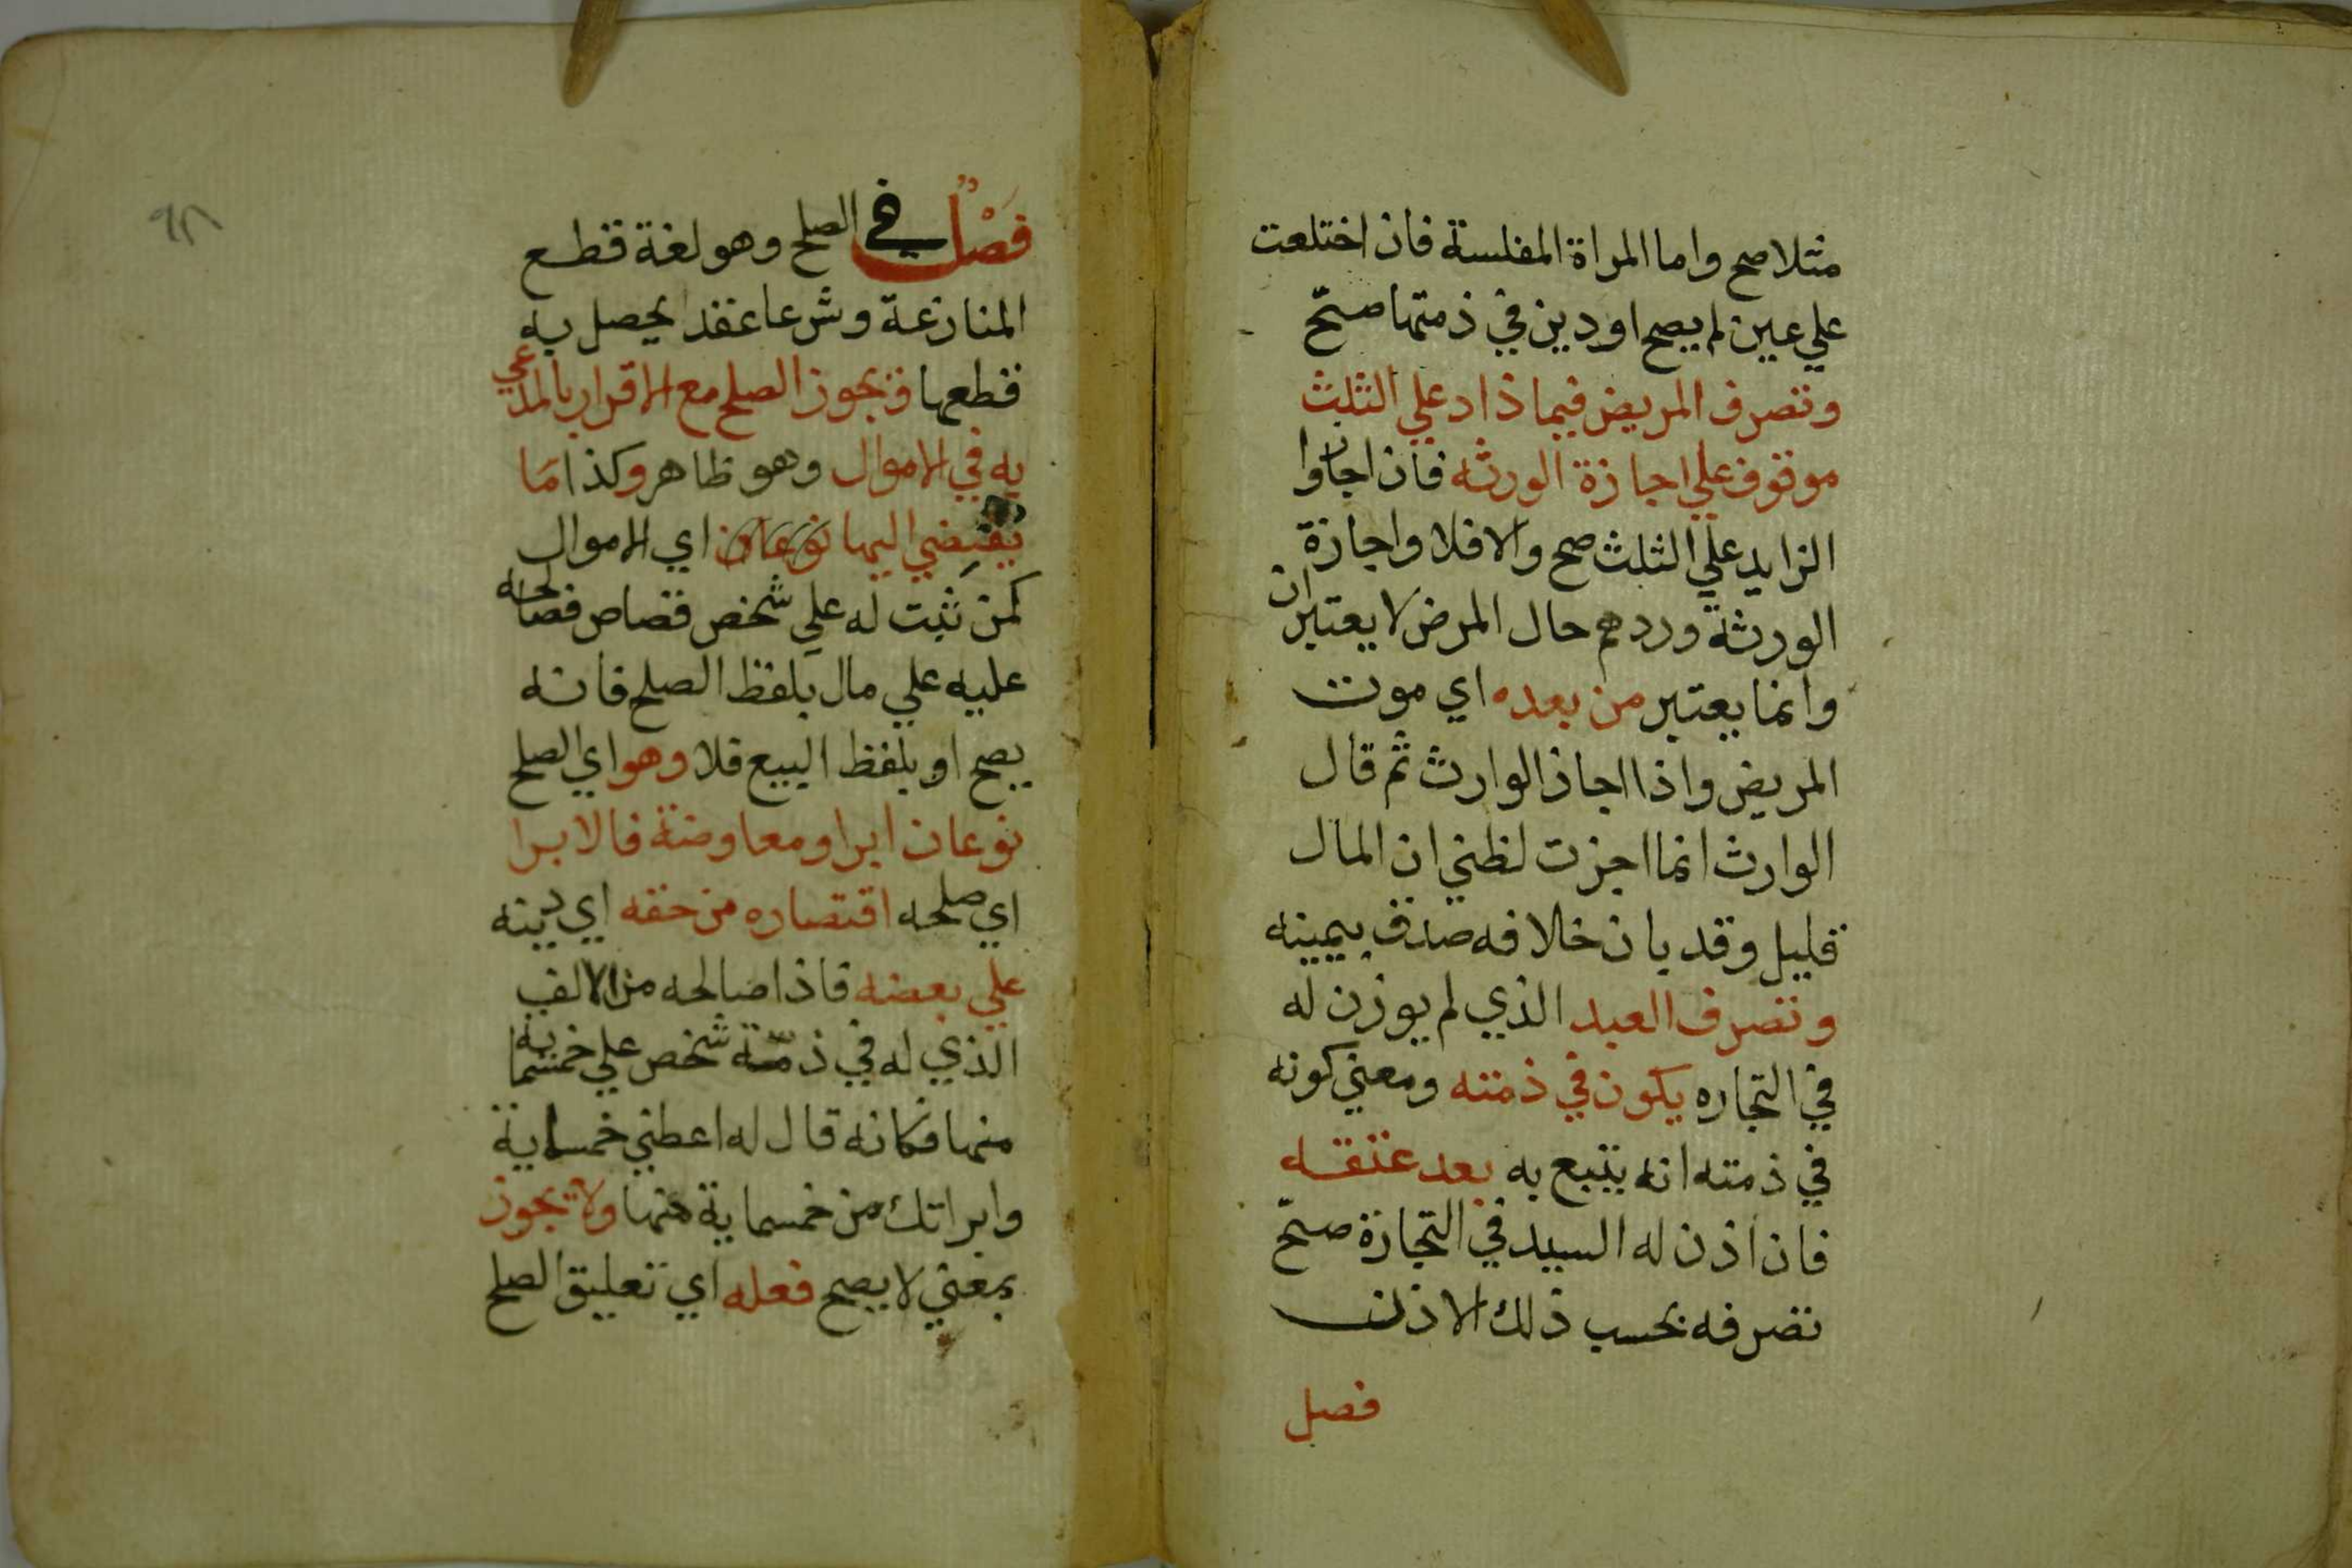 مثلا صح واما المراة المفلسة فان اختلعت
علي عين لم يصح او دين في ذمتها صحّ
وتصرف المريض فيما زاد علي الثلث
موقوف علي اجازة الورثه فان اجازوا
الزايد علي الثلث صح والا فلا واجازة
الورثة وردهم حال المرض لا يعتبران
وانما يعتبر من بعده اي موت
المريض واذا اجاز الوارث ثم قال
الوارث انما اجزت لظني ان المال
قليل وقد بان خلافه صدق بيمينه
وتصرف العبد الذي لم يوزن له
في التجاره يكون في ذمته ومعني كونه
في ذمته انه يتبع به بعد عتقه
فان اذن له السيد في التجارة صحّ
تصرفه بحسب ذلك الاذن
فصل
٩٢
فَصْلٌ في الصلح وهو لغة قطع
المنازعة وشرعا عقد يحصل به
قطعها ويجوز الصلح مع الاقرار بالمدعي
به في الاموال وهو ظاهر وكذا مَا
يفضي اليها نوعان اي الاموال
كمن ثبت له علي شخص قصاص فصالحه
عليه علي مال بلفظ الصلح فانه
يصح او بلفظ البيع فلا وهو اي الصلح
نوعان ابرا ومعاوضة فالابرا
اي صلحه اقتصاره من حقه اي دينه
علي بعضه فاذا صالحه من الالف
الذي له في ذمّته شخص علي خمسماية
منها فكانه قال له اعطني خمسماية
وابراتك من خمسماية منها ولا يجوز
بمعني لا يصح فعله اي تعليق الصلح